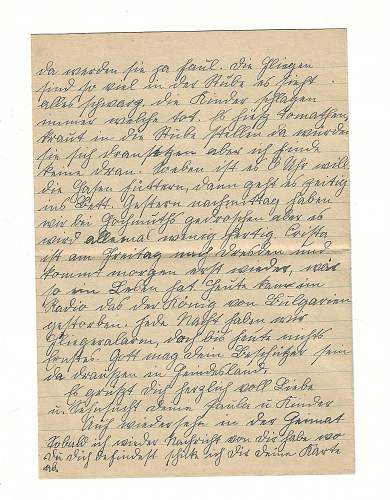 da werden sie ja faul. Die Fliegen
sind so viel in der Stube es sieht
alles schwarz. die Kinder schlagen
immer welche tot. Es hieß Tomathen-
kraut in die Stube stellen da würden
sie sich dransetzen aber ich finde
keine dran. Soeben ist es 6 Uhr will
die Hasen füttern, dann geht es zeitig
ins Bett. Gestern nachmittag haben
wir bei gedroschen aber es
wird allemal wenig fertig.
ist am Freitag nach Dresden und
kommt morgen erst wieder, wie
so ein Leben hat heute kam im
Radio das der König von Bulgarien
gestorben. Jede Nacht haben wir
Fliegeralarm, doch bis heute nichts
ernstes. Gott mag dein Beschützer sein
da draußen in Feindesland.
Es grüßt Dich herzlich voll Liebe
u. Sehnsucht deine Paula u. Kinder
Auf wiedersehn in der Heimat
Sobald ich wieder Nachricht von dir habe wo
Du Dich befindest schicke ich dir deine Karte
ab.